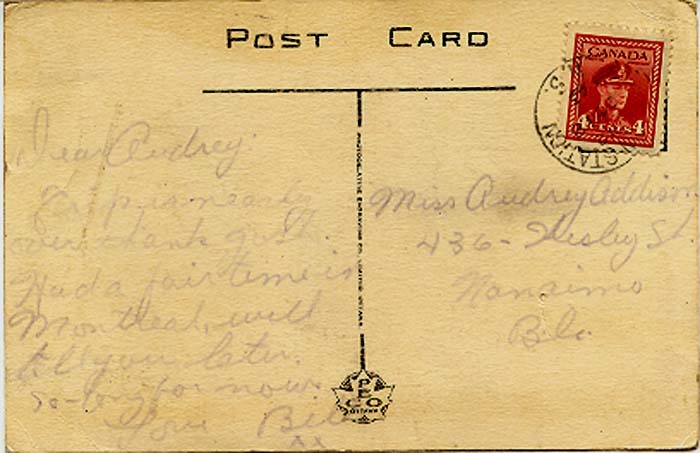 POST CARD
CANADA
4 CENTS 4
STATION
Dear Audrey.
Trip is nearly
over thank gosh.
Had a fair time in
Montreal, will
tell you later.
So-long for now
Love Bill
xx
PHOTOGELATINE ENGRAVING CO. LIMITED OTTAWA
Miss Audrey Addison
436 - Wesley St
Nanaimo
B.C.
PECO
OTTAWA